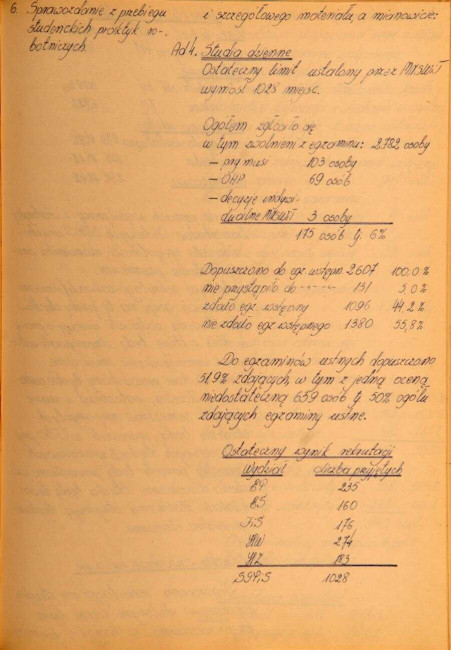 6. Sprawozdanie z przebiegu
studenckich praktyk ro-
botniczych.
i szczegółowego materiału, a mianowicie:
Ad 4. Studia dzienne
Ostateczny limit ustalony przez MNSzWiT
wynosił 1028 miejsc.
Ogółem zgłosiło się
w tym zwolnieni z egzaminu: 2.782 osoby
– prymusi 103 osoby
– OHP 69 osób
– decyzje indywi-
dualne MNSzWiT 3 osoby
175 osób tj. 6%
Dopuszczono do egz. wstępn. 2607 100,0%
nie przystąpiło do -"- -"- 131 5,0%
zdało egz. wstępny 1096 44,2%
nie zdało egz. wstępnego 1380 55,8%
Do egzaminów ustnych dopuszczono
51,9% zdających, w tym z jedną oceną
niedostateczną 659 osób tj. 50% ogółu
zdających egzaminy ustne.
Ostateczny wynik rekrutacji
Wydział liczba przyjętych
EP 235
EŚ 160
FiS 176
HW 274
183
SGPiS 1028